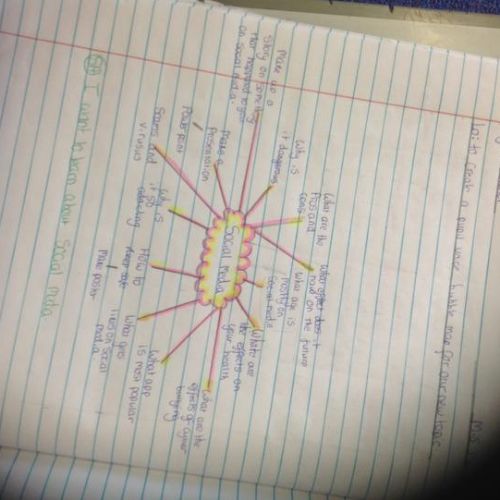 LO: to create a pupil voice bubble map for our new topic.
Make up a
story on something
that happened to you
on social media.
Why is
it dangerous
What are the
Pros and
cons
What effect does it
have on the future
What age is
mostly on
social media
What are
the effects on
your health
What are the
effects of cyber
bullying
What app
is most popular
Who goes
on social
media
How to
keep safe
Make poster
Why is
it so
addicting
Scams and
viruses
Make a
Presentation
Power point
Social Media
I want to learn about Social Media